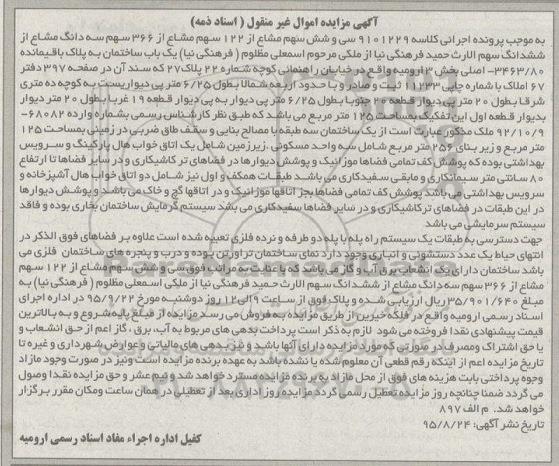 آگهی مزایده اموال غیر منقول ( اسناد ذمه)
به موجب پرونده اجرائی کلاسه ۹۱۰۱۲۲۹ سی و شش سهم مشاع از ۱۲۲ سهم مشاع از ۳۶۶ سهم سه دانگ مشاع از
ششدانگ سهم الارث حمید فرهنگی نیا از ملکی مرحوم اسمعلی مظلوم ( فرهنگی نیا) یک باب ساختمان به پلاک باقیمانده
۳۴۶۳/۸۰- اصلی بخش ۲ ارومیه واقع در خیابان راهنمائی کوچه شماره ۲۲ پلاک ۲۷ که سند آن در صفحه ۳۹۷ دفتر
۶۷ املاک با شماره چاپی ۱۱۲۳۳ ثبت و صادر و با حدود اربعه شمالا بطول ۶/۲۵ متر پی دیواریست به کوچه ده متری
شرقا بطول ۲۰ متر پی دیوار قطعه ۳ جنوبا بطول ۶/۲۵ متر پی دیوار به پی دیوار قطعه ۱۹ غربا بطول ۲۰ متر دیوار
بدیوار قطعه اول این تفکیک بمساحت ۱۲۵ متر مربع می باشد که طبق نظر کارشناس رسمی بشماره وارده ۶۸۰۸۲-
۹۲/۱۰/۹ ملک مذکور عبارت است از یک ساختمان سه طبقه با مصالح بنایی و سقف طاق ضربی در زمینی بمساحت ۱۲۵
متر مربع و زیر بنای ۲۵۶ متر مربع شامل سه واحد مسکونی .زیرزمین شامل یک اتاق خواب هال پارکینگ و سرویس
بهداشتی بوده که پوشش کف تمامی فضاها موزائیک و پوشش دیوارها در فضاهای تر کاشیکاری و در سایر فضاها تا ارتفاع
۸۰ سانتی متر سیمانکاری و مابقی سفیدکاری می باشد طبقات همکف و اول نیز شامل دو اتاق خواب هال آشپزخانه و
سرویس بهداشتی می باشد پوشش کف تمامی فضاها بجز اتاقها موزائیک و در اتاقها گچ و خاک می باشد و پوشش دیوارها
در این طبقات در فضاهای تر کاشیکاری و در سایر فضاها سفیدکاری می بشد سیستم گرمایش ساختمان بخاری بوده و فاقد
سیستم سرمایشی می باشد
جهت دسترسی به طبقات یک سیستم راه پله با پله دو طرفه و نرده فلزی تعبیه شده است علاوه بر فضاهای فوق الذکر در
انتهای حیاط یک عدد دستشوئی و انباری وجود دارد نمای ساختمان تراورتن بوده و درب و پنجره های ساختمان فلزی می
باشد ساختمان دارای یک انشعاب برق آب و گاز می باشد که با عنایت به مراتب فوق سی و شش سهم مشاع از ۱۲۲ سهم
مشاع از ۳۶۶ سهم سه دانگ مشاع از ششدانگ سهم الارث حمید فرهنگی نیا از ملکی اسمعلی مظلوم ( فرهنگی نیا) به
مبلغ ۳۵/۹۰۱/۶۴۰ ریال ارزیابی شده و پلاک فوق از ساعت ۹ الی ۱۲ روز دوشنبه مورخ ۹۵/۹/۲۲ در اداره اجرای
اسناد رسمی ارومیه واقع در فلکه خیرین از طریق مزایده به فروش می رسد مزایده از مبلغ پایه شروع و به بالاترین
قیمت پیشنهادی نقدا فروخته می شود لازم به ذکر است پرداخت بدهی های مربوط به آب، برق ، گاز اعم از حق انشعاب و
یا حق اشتراک ومصرف در صورتی که مورد مزایده دارای آنها باشد و نیز بدهی های مالیاتی و عوارض شهرداری و غیره تا
تاریخ مزایده اعم از اینکه رقم قطعی آن معلوم شده یا نشده باشد به عهده برنده مزایده است ونیز در صورت وجود مازاد
وجوه پرداختی بابت هزینه های فوق از محل مازاد به برنده مزایده مسترد خواهد شد و نیم عشر و حق مزایده نقدا وصول
می گردد ضمنا چنانچه روز مزایده تعطیل رسمی گردد مزایده روز اداری بعد از تعطیلی در همان ساعت ومکان مقرر برگزار
خواهد شد. م الف ۸۹۷
تاریخ نشر آگهی: ۹۵/۸/۲۴
کفیل اداره اجراء مفاد اسناد رسمی ارومیه